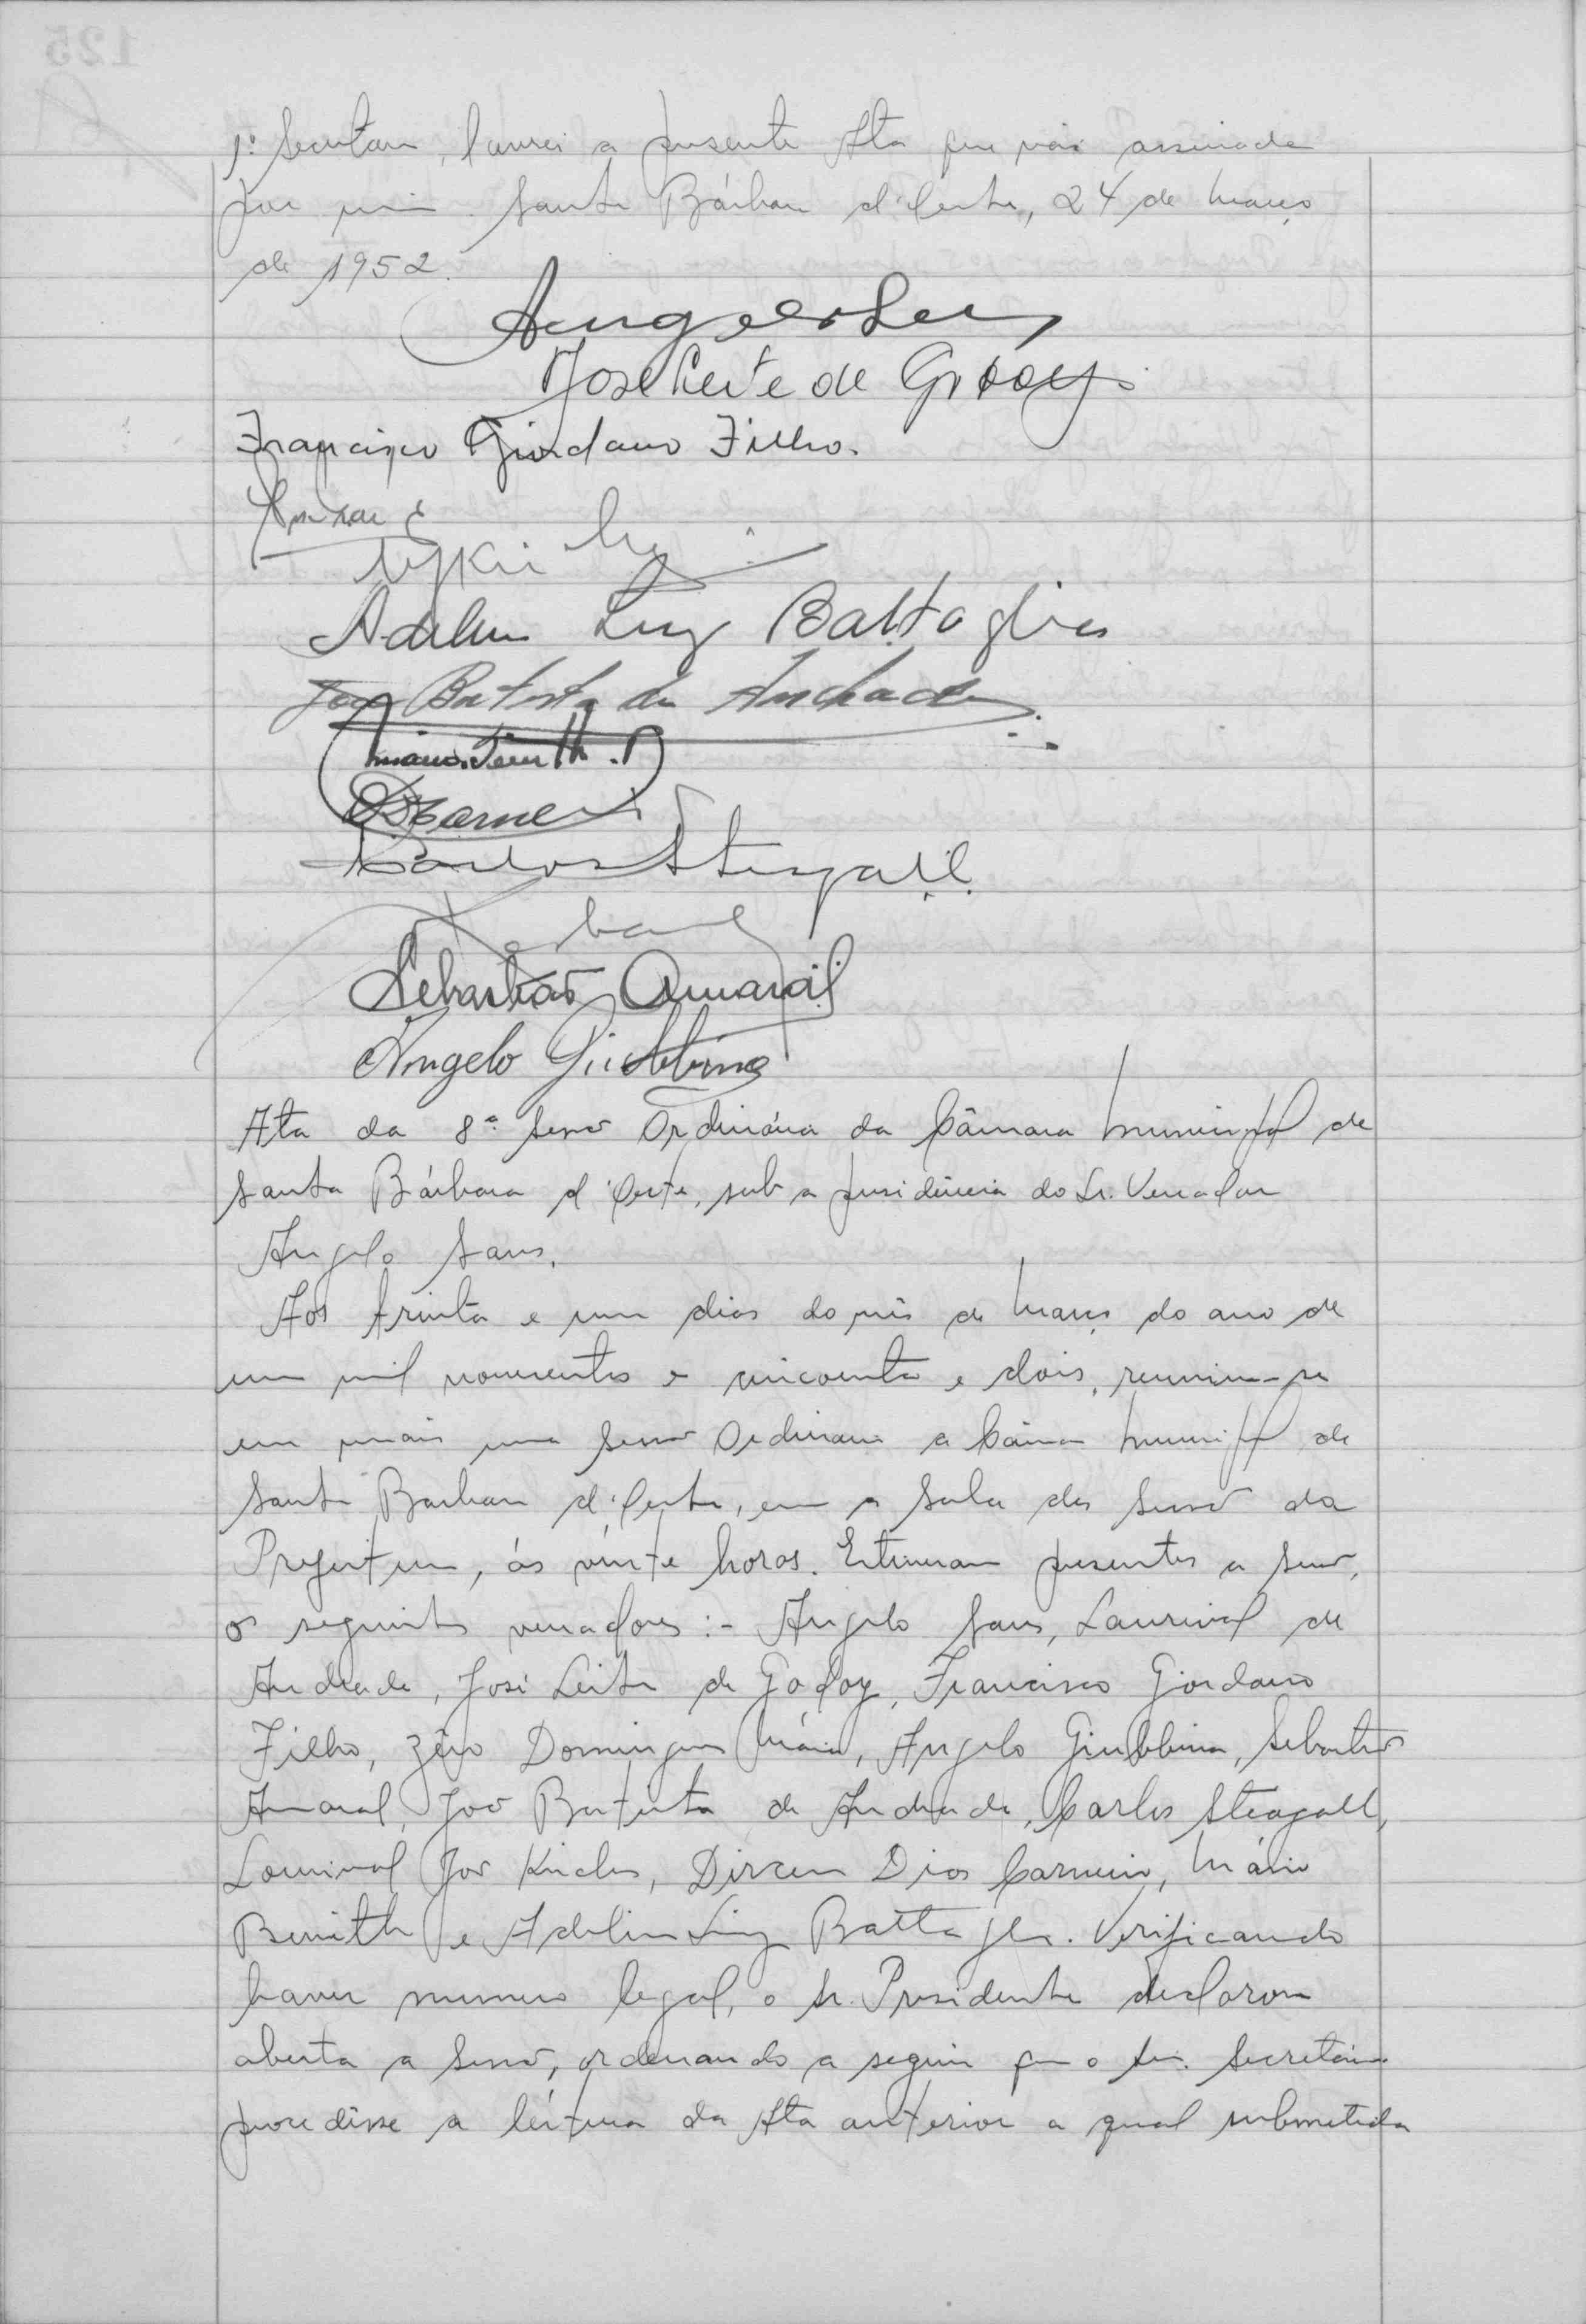 1º Secretario, lavrei a presente Ata que vai assinada
por mim. Santa Bárbara d'Oeste, 24 de Março
de 1952.
Angelo Sans
José Leite de Godoy
Francisco Giordano Filho.
Adelino Luiz Battaglia
João Batista de Andrade
Mário Benith
Carlos Steagall
Sebastião Amaral
Ângelo Giubbina
Ata da 8ª Sessão Ordinária da Câmara Municipal de
Santa Bárbara d'Oeste, sub a presidência do Sr. Vereador
Angelo Sans.
Aos trinta e um dias do mês de Março do ano de
um mil novecentos e cincoenta e dois, reuniu-se
em mais uma Sessão Ordinaria a Câmara Municipal de
Santa Barbara d'Oeste, em a Sala das Sessões da
Prefeitura, ás vinte horas. Estiveram presentes a Sessão,
os seguintes vereadores :- Angelo Sans, Laurival de
Andrade, José Leite de Godoy, Francisco Giordano
Filho, Zêno Domingues Maia, Angelo Giubbina, Sebastião
Amaral, João Batista de Andrade, Carlos Steagall,
Lourival João, Dirceu Dias Carneiro, Mário
Benith e Adelino Luiz Battaglia. Verificando
haver numero legal, o Sr. Presidente declarou
aberta a Sessão, ordenando a seguir que o Sr. Secretário
procedêsse a leitura da Ata anterior a qual submetida